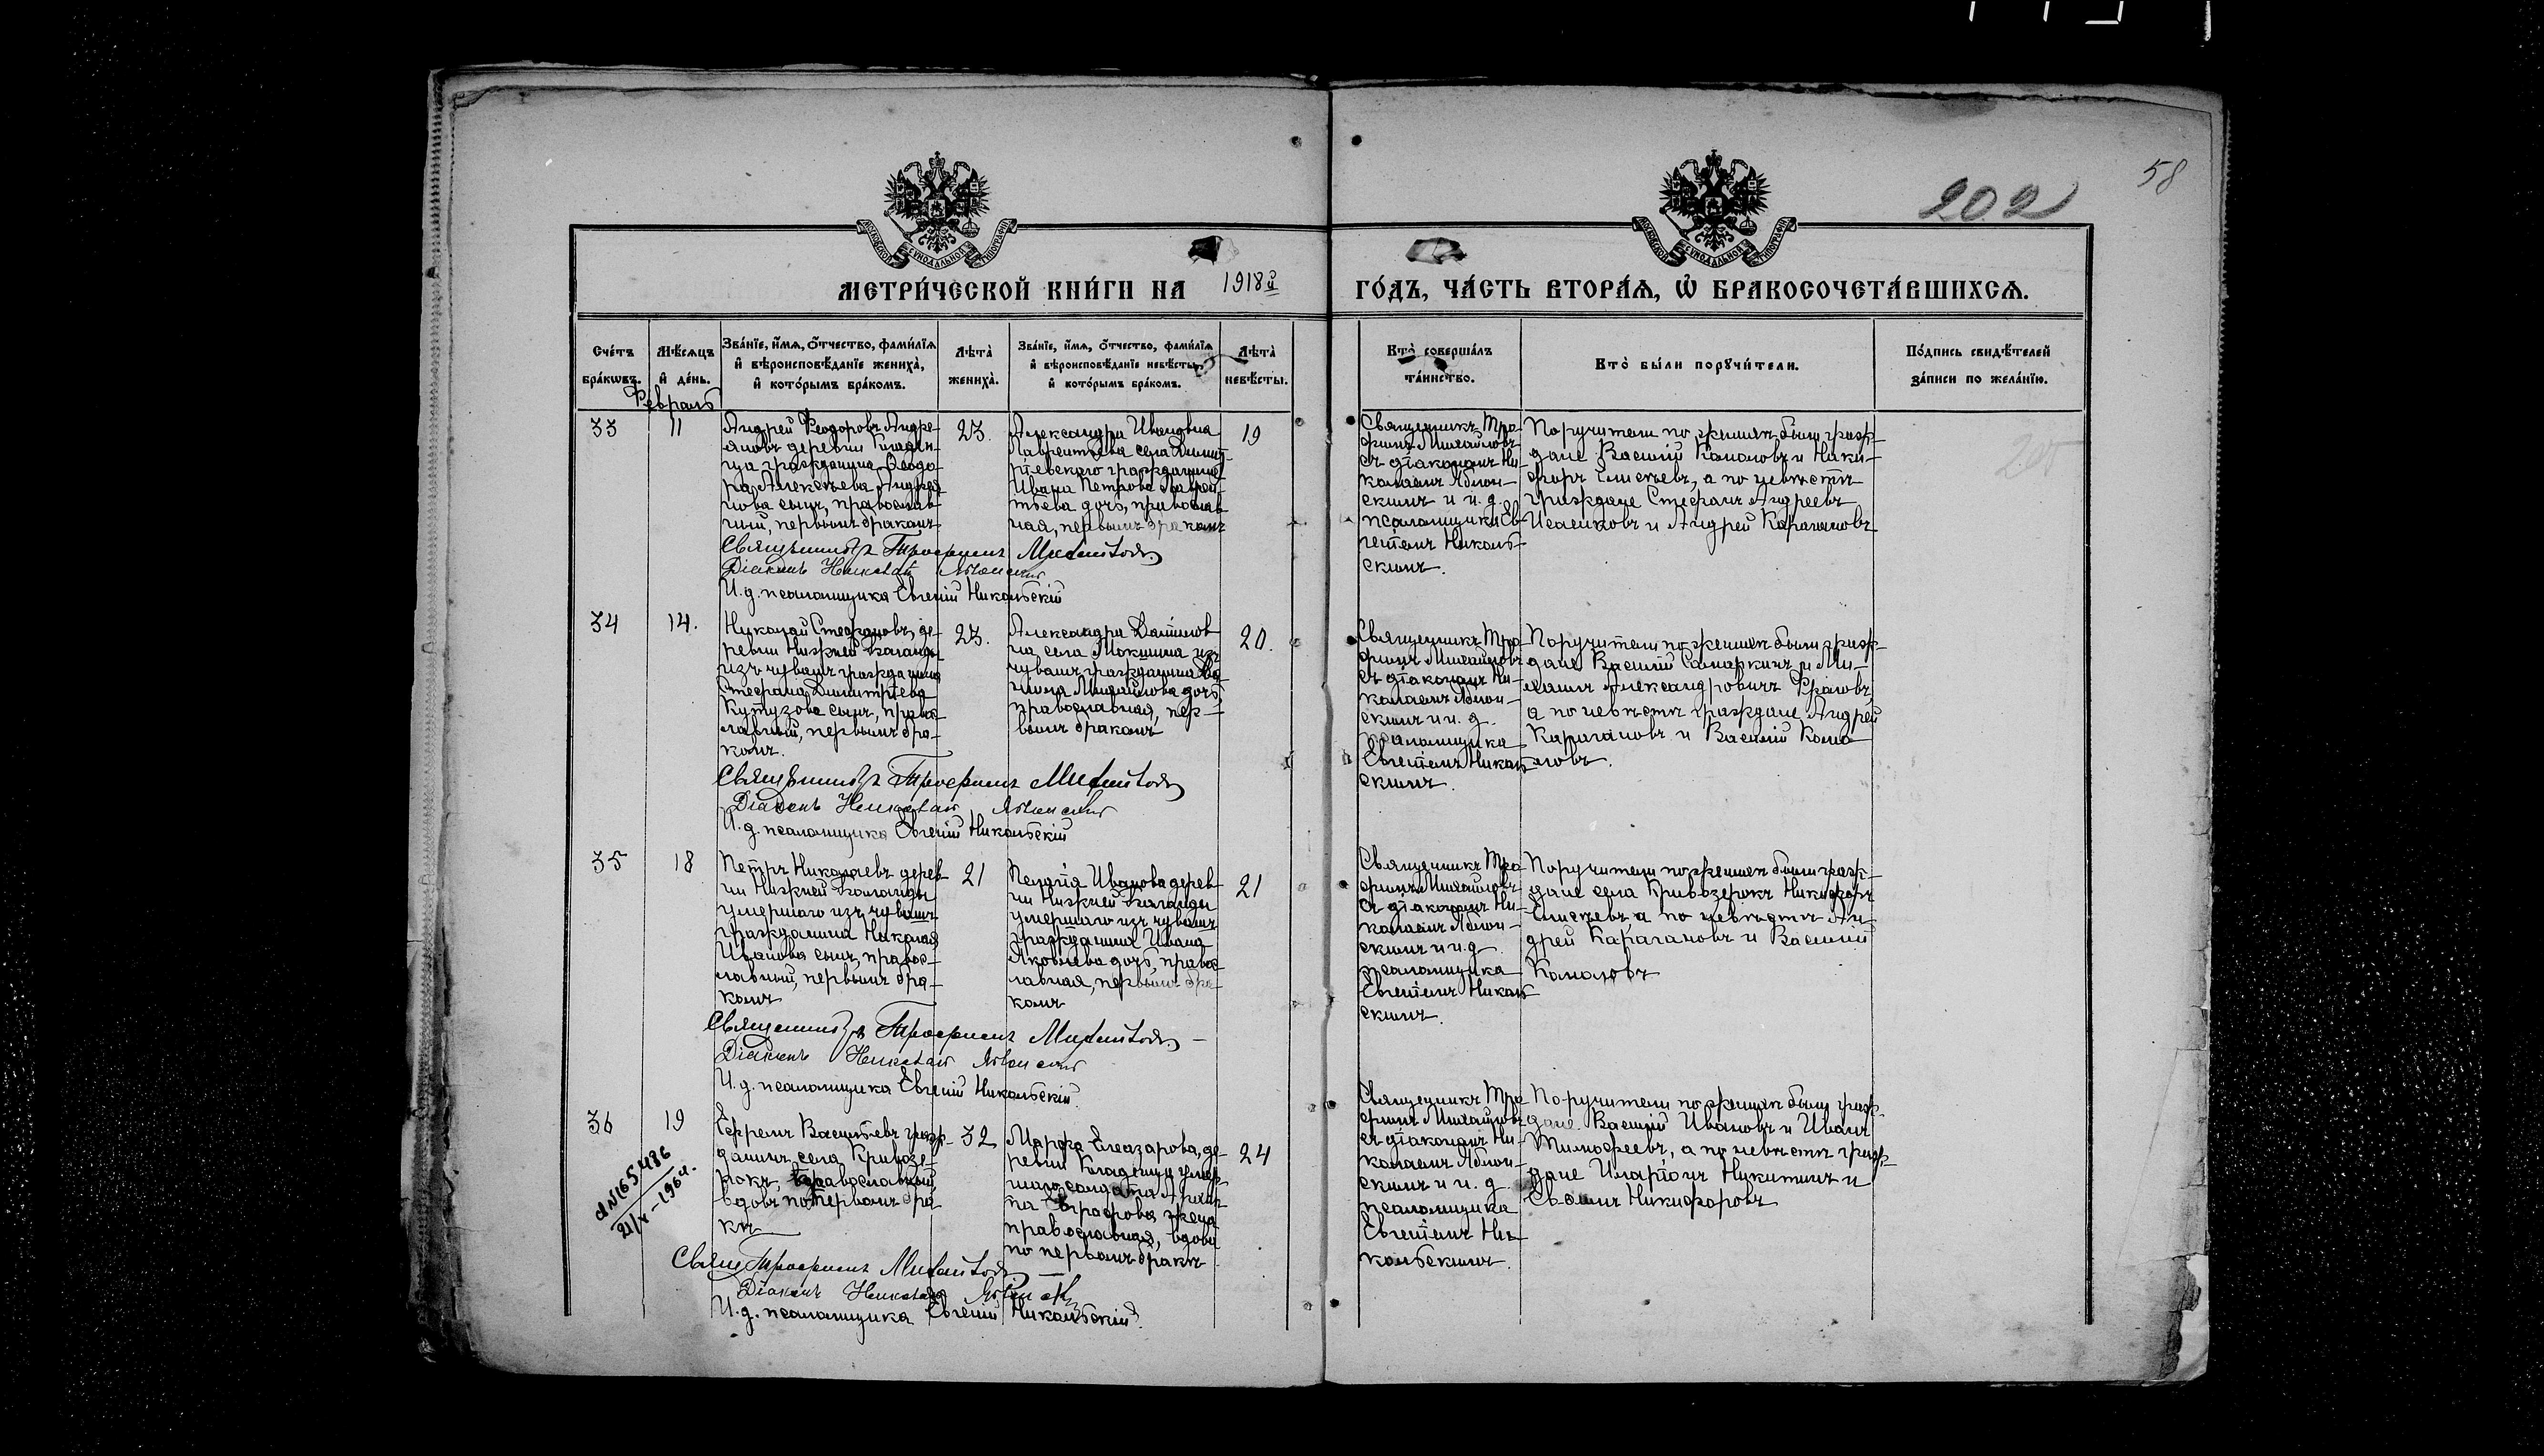 202
58
МОСКОВСКОЙ СѴНОДАЛЬНОЙ ТИПОГРАФІИ
МОСКОВСКОЙ СѴНОДАЛЬНОЙ ТИПОГРАФІИ
МЕТРИ́ЧЕСКОЙ КНИ́ГИ НА 1918й ГО́ДЪ, ЧА́СТЬ ВТОРА́Ѧ, Ѡ҆ БРАКОСОЧЕТА́ВШИХСѦ.
Сче́тъ бра́кѡвъ.
Мѣ́сѧцъ и҆ де́нь.
Зва́нїе, и҆́мѧ, ѻ҆́тчество, фами́лїѧ и҆ вѣроисповѣ́данїе жениха̀, и҆ кото́рымъ бра́комъ.
Лѣта̀ жениха̀.
Зва́нїе, и҆́мѧ, ѻ҆́тчество, фами́лїѧ и҆ вѣроисповѣ́данїе невѣ́сты, и҆ кото́рымъ бра́комъ.
Лѣта̀ невѣ́сты.
Кто̀ соверша́лъ та́инство.
Кто̀ бы́ли порꙋчи́тели.
По́дпись свидѣ́телей за́писи по жела́нїю.
Февраль
33
11
Андрей Ѳеодоровъ Андре-
яновъ деревни Кладен-
ца гражданина Ѳеодо-
ра Алексѣева Андрея-
нова сынъ, православ-
ный, первымъ бракомъ
23.
Александра Иванова
Лаврентьева села Димит-
ріевскаго гражданина
Ивана Петрова Лаврен-
тьева дочь, православ-
ная, первымъ бракомъ
19
Священникъ Тро-
фимъ Михайловъ
съ діакономъ Ни-
колаемъ Яблон-
скимъ и и. д.
псаломщика Ев-
геніемъ Николь-
скимъ.
Поручители по женихѣ были граж-
дане Василій Камаловъ и Ники-
форъ Елисѣевъ, а по невѣстѣ
граждане Стефанъ Андреевъ
Исаенковъ и Андрей Карагановъ
Священникъ Трофимъ Михайловъ
Діаконъ Николай Яблонскій
И. д. псаломщика Евгеній Никольскій
34
14.
Николай Стефановъ, де-
ревни Нижней Каланды
изъ чувашъ гражданина
Стефана Димитріева
Кутузова сынъ, правос-
лавный, первымъ бра-
комъ.
23.
Александра Данилов-
на села Мокшина изъ
чувашъ гражданина Да-
ніила Михайлова дочь,
православная, пер-
вымъ бракомъ
20.
Священникъ Тро-
фимъ Михайловъ
съ діакономъ Ни-
колаемъ Яблон-
скимъ и и. д.
псаломщика
Евгеніемъ Николь-
скимъ.
Поручители по женихѣ были граж-
дане Василій Самаркинъ и Ми-
хаилъ Александровичъ Фроловъ,
а по невѣстѣ граждане Андрей
Карагановъ и Василій Кома-
ловъ.
Священникъ Трофимъ Михайловъ
Діаконъ Николай Яблонскій
И. д. псаломщика Евгеній Никольскій
35
18
Петръ Николаевъ дерев-
ни Нижней Каланды
умершаго изъ чувашъ
гражданина Николая
Иванова сынъ, правос-
лавный, первымъ бра-
комъ
21
Пелагія Иванова дерев-
ни Нижней Каланды
умершаго изъ чувашъ
гражданина Ивана
Яковлева дочь, правос-
лавная, первымъ бра-
комъ
21
Священникъ Тро-
фимъ Михайловъ
съ діакономъ Ни-
колаемъ Яблон-
скимъ и и. д.
псаломщика
Евгеніемъ Николь-
скимъ.
Поручители по женихѣ были граж-
дане села Кривозерокъ Никифоръ
Елисѣевъ, а по невѣстѣ Ан-
дрей Карагановъ и Василій
Камаловъ
Священникъ Трофимъ Михайловъ
Діаконъ Николай Яблонскій
И. д. псаломщика Евгеній Никольскій.
36
19
Ефремъ Васильевъ граж-
данинъ села Кривозе-
рокъ, православный,
вдовъ по первомъ бра-
кѣ
32
Марфа Елеазарова, де-
ревни Кладенца умер-
шаго солдата
Евграфова жена
православная, вдова
по первомъ бракѣ
24
Священникъ Тро-
фимъ Михайловъ
съ діакономъ Ни-
колаемъ Яблон-
скимъ и и. д.
псаломщика
Евгеніемъ Ни-
кольскимъ.
Поручители по женихѣ были граж-
дане Василій Ивановъ и Иванъ
Тимофеевъ, а по невѣстѣ граж-
дане Иларіонъ Никитинъ и
Никифоровъ
Свящ Трофимъ Михайловъ
Діаконъ Николай Яблонскій
И. д. псаломщика Евгеній Никольскій.